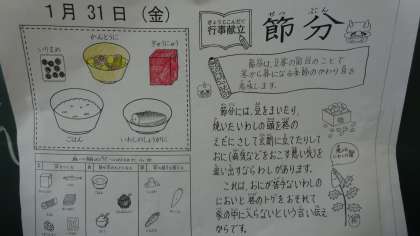 1月31日（金）
いりまめ
かんとうに
ぎゅうにゅう
ごはん
いわしのしょうがに
ぎょうじこんだて
行事献立
せつ ぶん
節分
節分は、立春の前日のことで
冬から春になる季節のかわり目を
意味します。
節分には、豆をまいたり、
焼いたいわしの頭を柊の
えだにさして玄関に立てたりして
おに(病気などをおこす悪い気)を
追い出すならわしがあります。
これは、おにが苦手ないわしの
においと柊のトゲをおそれて
家の中に入らないという言い伝え
からです。